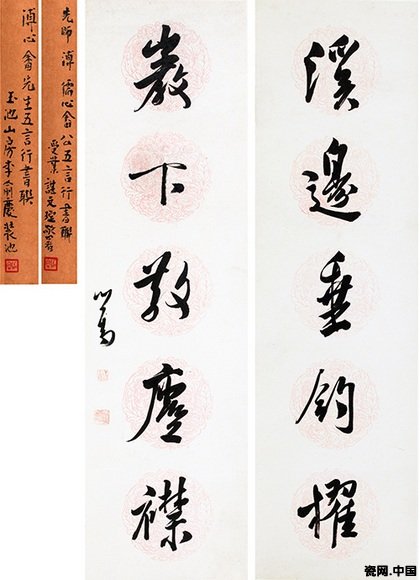 溪邊垂釣櫂
巖下散塵襟
心畬
先師溥儒心畬公五言行書聯
受業
溥心畬先生五言行書聯
玉池山房李慶裝池
瓷网.中国